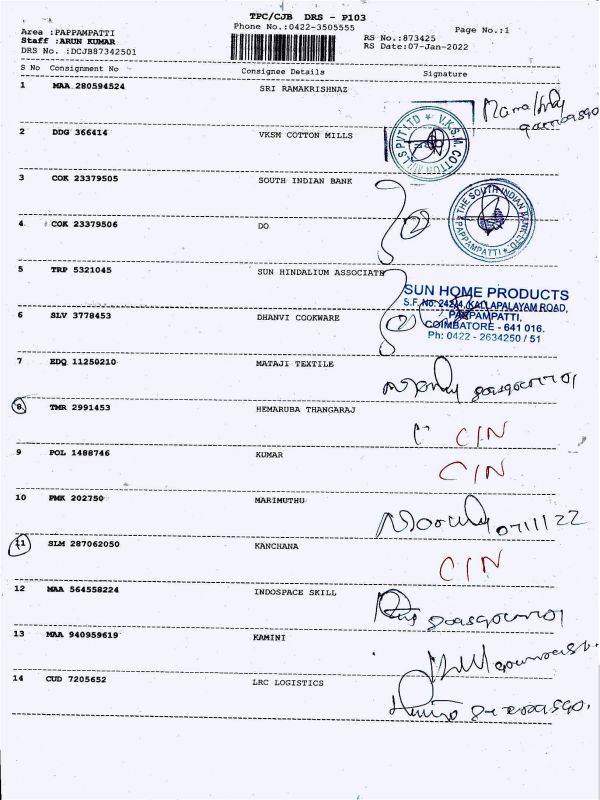 TPC/CJB DRS - P103
Phone No.:0422-3505555
Page No.:1
Area :PAPPAMPATTI
Staff :ARUN KUMAR
DRS No. :DCJB87342501
RS No.:873425
RS Date:07-Jan-2022
S No Consignment No Consignee Details Signature
1 MAA 280594524 SRI RAMAKRISHNAZ
2 DDG 366414 VKSM COTTON MILLS
V.K.S.M. COTTON MILLS PVT LTD *
3 COK 23379505 SOUTH INDIAN BANK
THE SOUTH INDIAN BANK LTD.
* PAPPAMPATTI *
4 COK 23379506 DO
2
5 TRP 5321045 SUN HINDALIUM ASSOCIATE
SUN HOME PRODUCTS
S.F. No. 242/4, KALLAPALAYAM ROAD,
PAPPAMPATTI,
COIMBATORE - 641 016.
Ph: 0422 - 2634250 / 51
6 SLV 3778453 DHANVI COOKWARE
2
7 EDQ 11250210 MATAJI TEXTILE
8 TMR 2991453 HEMARUBA THANGARAJ
C/N
9 POL 1488746 KUMAR
C/N
10 PMK 202750 MARIMUTHU
07/1/22
11 SLM 287062050 KANCHANA
C/N
12 MAA 564558224 INDOSPACE SKILL
13 MAA 940959619 KAMINI
14 CUD 7205652 LRC LOGISTICS